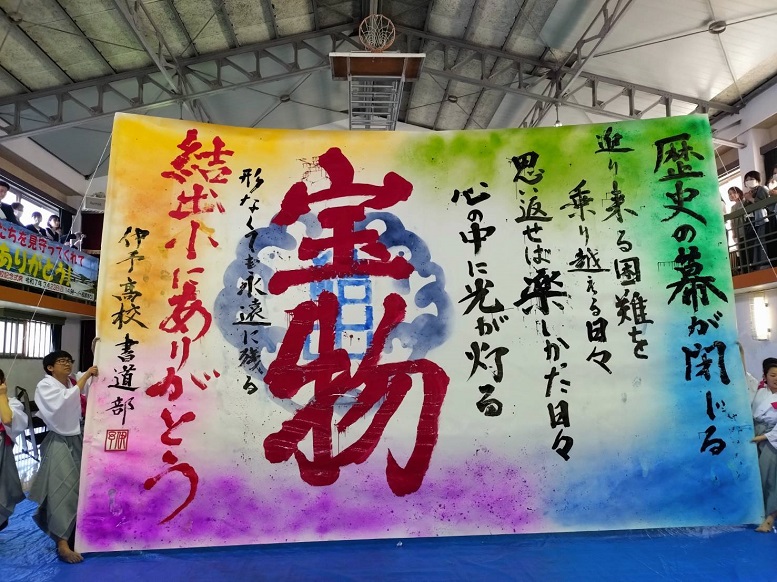 歴史の幕が閉じる
迫り来る困難を
乗り越える日々
思い返せば楽しかった日々
心の中に光が灯る
宝物
形なくても永遠に残る
結出小にありがとう
伊予高校 書道部
たちを見守ってくれて
ありがとう